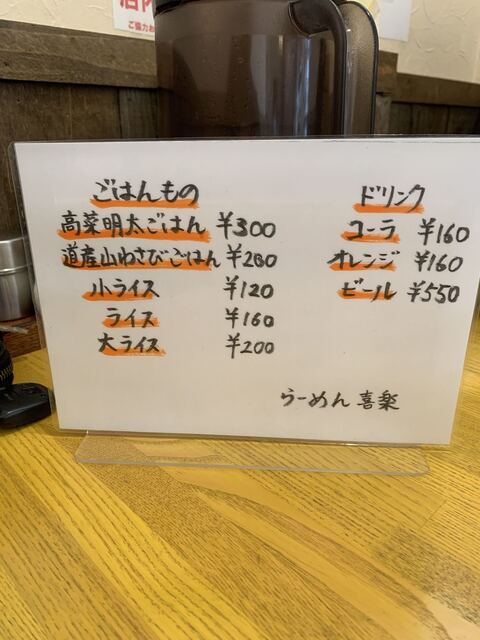 ご協力お
ごはんもの
高菜明太ごはん ¥300
道産山わさびごはん ¥200
小ライス ¥120
ライス ¥160
大ライス ¥200
ドリンク
コーラ ¥160
オレンジ ¥160
ビール ¥550
らーめん喜楽